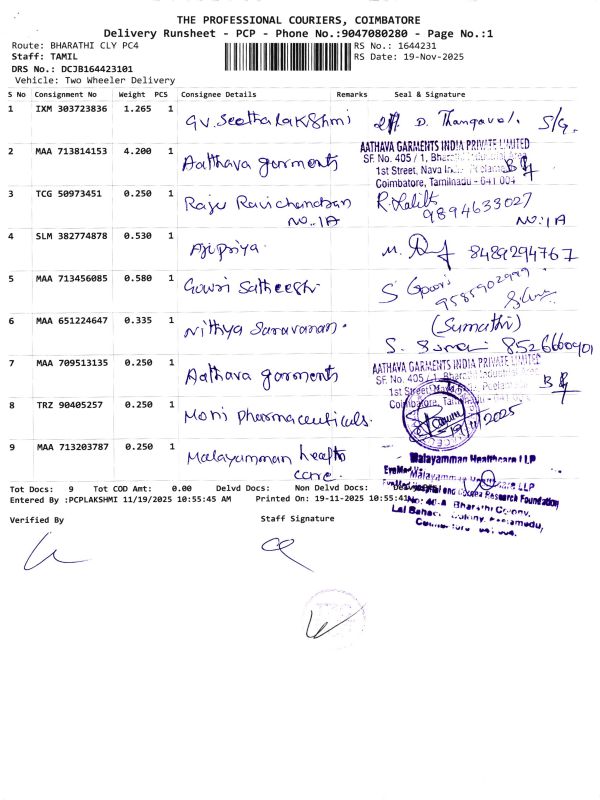 THE PROFESSIONAL COURIERS, COIMBATORE
Delivery Runsheet - PCP - Phone No.:9047080280 - Page No.:1
Route: BHARATHI CLY PC4
RS No.: 1644231
Staff: TAMIL
RS Date: 19-Nov-2025
DRS No.: DCJB164423101
Vehicle: Two Wheeler Delivery
S No Consignment No Weight PCS Consignee Details Remarks Seal & Signature
1 IXM 303723836 1.265 1 GV. Seethalakshmi D. Thangavel. S/G.
AATHAVA GARMENTS INDIA PRIVATE LIMITED
2 MAA 713814153 4.200 1 Aathava garments
SF. No. 405 / 1, Bharathi Industrial Area
1st Street, Nava India, Peelamedu
Coimbatore, Tamilnadu - 641 004
3 TCG 50973451 0.250 1 Raju Ravichandran R. Lalith
NO: 1A 9894633027
NO: 1A
4 SLM 382774878 0.530 1 Ajipriya. 8489294767
5 MAA 713456085 0.580 1 Gowri Satheesh S Gowri
9585902999
6 MAA 651224647 0.335 1 Nithya Saravanan. (Sumathi)
8526660901
AATHAVA GARMENTS INDIA PRIVATE LIMITED
7 MAA 709513135 0.250 1 Aathava garments
SF. No. 405 / 1, Bharathi Industrial Area
1st Street, Peelamedu
Coimbatore,
8 TRZ 90405257 0.250 1 Moni Pharmaceuticals. 19/11/2025
9 MAA 713203787 0.250 1 Malayamman health care.
Malayamman Healthcare LLP
Malayamman Healthcare LLP
Hospital and Research Foundation
No: 40-A, Bharathi Colony,
Lal Bahadur Colony, Peelamedu,
Coimbatore - 641 004.
Tot Docs: 9 Tot COD Amt: 0.00 Delvd Docs: Non Delvd Docs:
Entered By :PCPLAKSHMI 11/19/2025 10:55:45 AM Printed On: 19-11-2025 10:55:41
Verified By Staff Signature